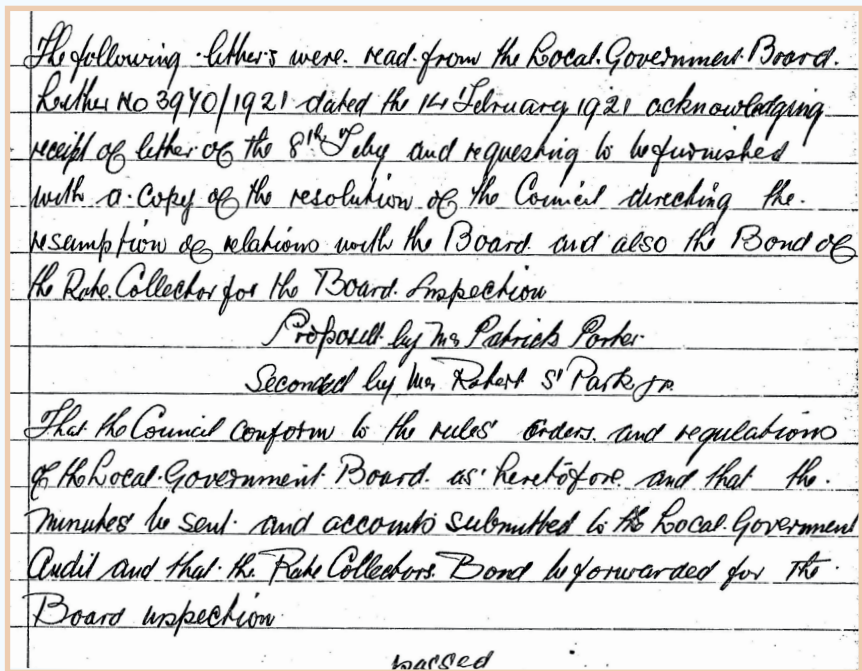 The following letters were read from the Local Government Board.
Letter No 3940/1921 dated the 14 February 1921 acknowledging
receipt of letter of the 8th Feby and requesting to be furnished
with a copy of the resolution of the Council directing the
resumption of relations with the Board and also the Bond of
the Rate Collector for the Board Inspection
Proposed by Mr Patrick Porter
Seconded by Mr Robert S Park Jr
That the Council conform to the rules orders and regulations
of the Local Government Board as heretofore and that the
minutes be sent and accounts submitted to the Local Government
Audit and that the Rate Collectors Bond be forwarded for the
Board inspection
passed